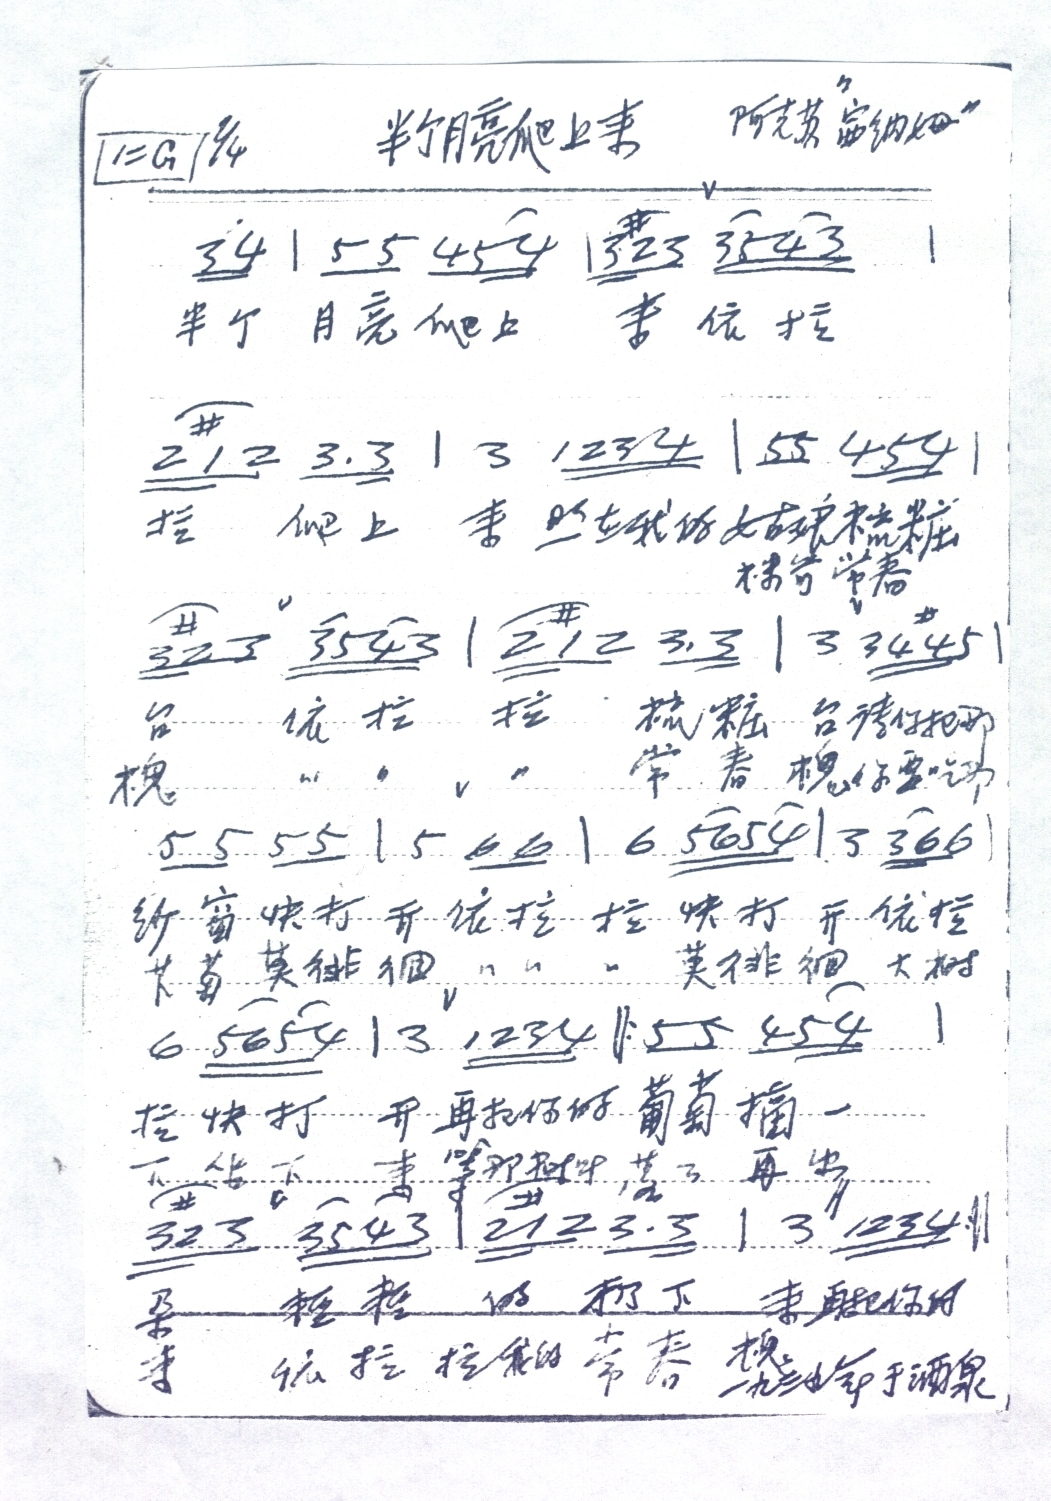 1=G 2/4 半个月亮爬上来 阿克苏"密纳姆"
34 | 55 454 | 3#23 3543 |
半个 月亮爬上 来依拉
2#12 3.3 | 3 1234 | 55 454 |
拉 爬上 来 照在我的姑娘梳粧
常春
#323 3543 | 2#12 3.3 | 3 34#45 |
台 依拉 拉 梳粧 台请你把那
槐 〃 〃 〃 常春 槐你要吃那
55 55 | 5 66 | 6 5654 | 3 366 |
纱窗快打 开依拉 拉 快打 开依拉
葡萄莫徘徊 〃 〃 〃 莫徘徊 大树
6 5654 | 3 1234 ‖: 55 454 |
拉快打 开再把你的葡萄摘一
下 下 来 等那 落了再出
3#23 3543 | 2#12 3.3 | 3 1234 :‖
朵 轻轻 的 扔下 来再把你的
来 依拉拉我的常春 槐
一九三九年于酒泉